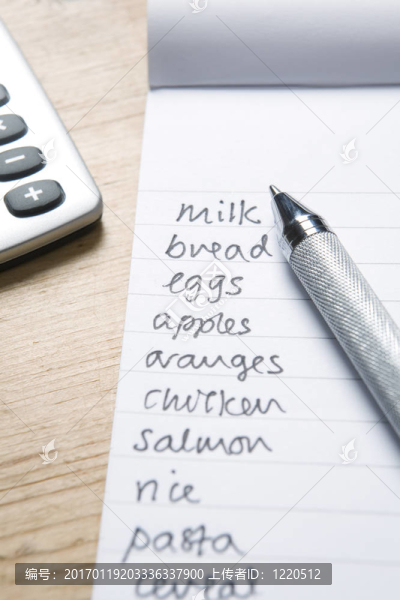 milk
bread
eggs
apples
oranges
chicken
salmon
rice
pasta
cereal
编号:20170119203336337900 上传者ID: 1220512